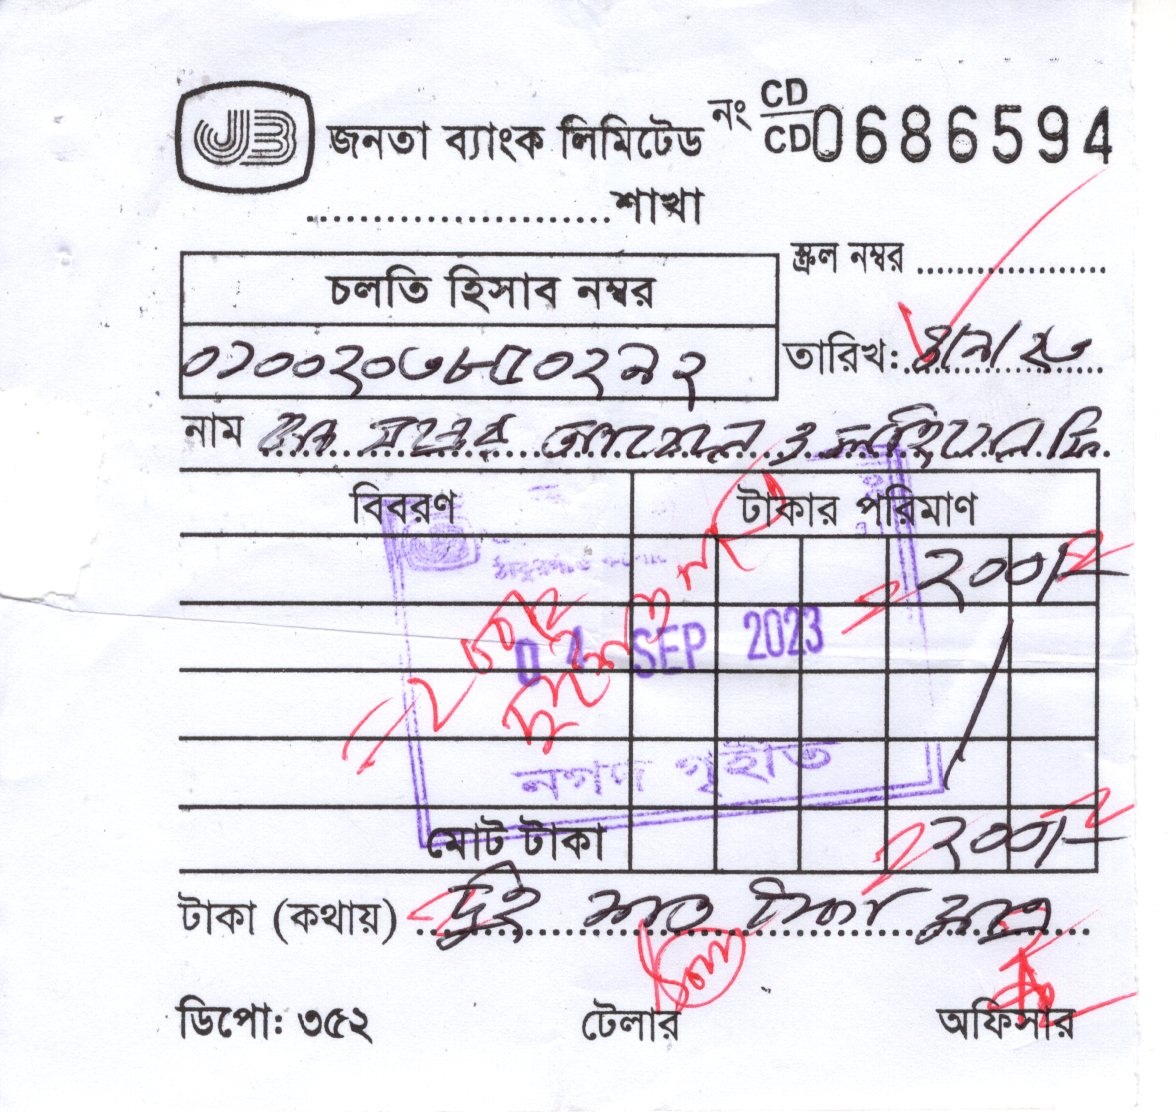 JB জনতা ব্যাংক লিমিটেড নং CD/CD 0686594
........................শাখা
স্ক্রল নম্বর ....................
চলতি হিসাব নম্বর
তারিখ: ৪/৯/২৩
০১০০২০৩৮৫০২৯২
নাম ও ফি
বিবরণ টাকার পরিমাণ
২০০/-
04 SEP 2023
নগদ গৃহীত
মোট টাকা ২০০/-
টাকা (কথায়) দুই শত টাকা মাত্র
ডিপো: ৩৫২ টেলার অফিসার